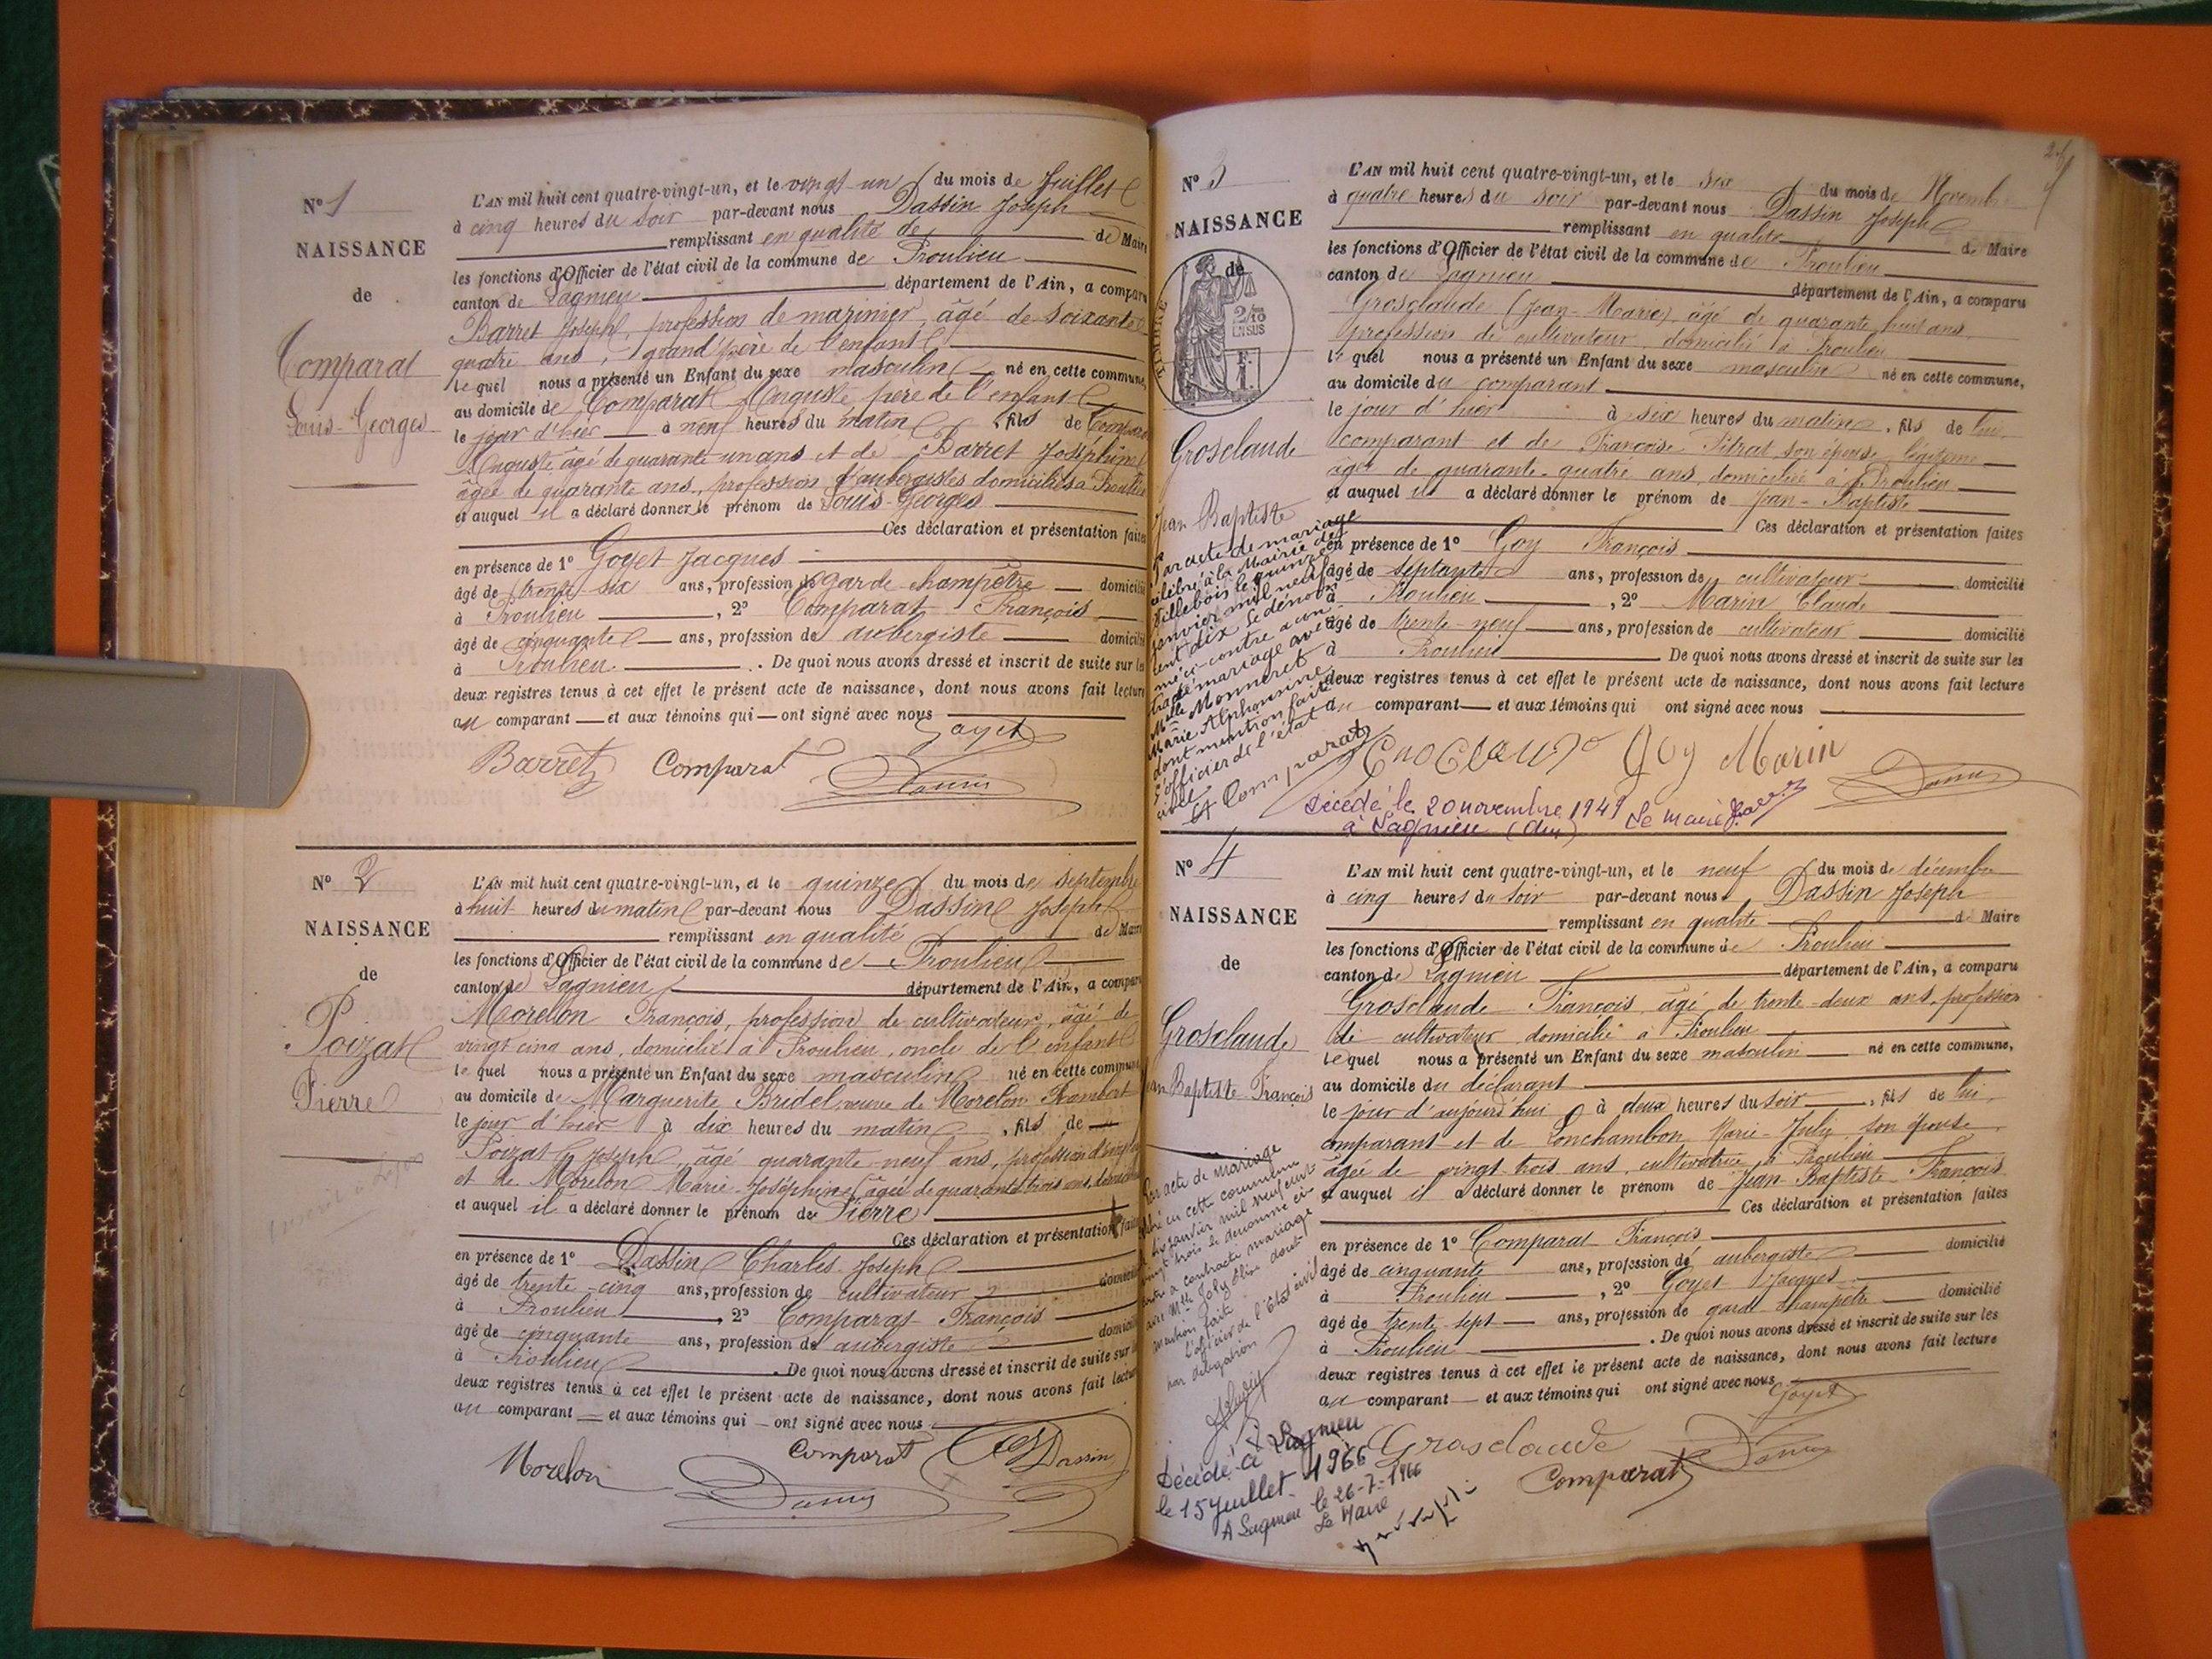 No 1
NAISSANCE
de
Comparat
Louis-Georges
L'AN mil huit cent quatre-vingt-un, et le vingt-un du mois de Juillet
à cinq heures du soir par-devant nous Dassin Joseph
remplissant en qualité de de Maire
les fonctions d'Officier de l'état civil de la commune de Proulieu
canton de Lagnieu département de l'Ain, a comparu
Barret Joseph, profession de marinier, âgé de soixante
quatre ans, grand'père de l'enfant
lequel nous a présenté un Enfant du sexe masculin né en cette commune,
au domicile de Comparat Auguste père de l'enfant
le jour d'hier à neuf heures du matin fils de Comparat
Auguste âgé de quarante-un ans et de Barret Joséphine
âgée de quarante ans, profession d'aubergistes domiciliés à Proulieu
et auquel il a déclaré donner le prénom de Louis-Georges
Ces déclaration et présentation faites
en présence de 1° Goyet Jacques
âgé de trente-six ans, profession de garde champêtre domicilié
à Proulieu, 2° Comparat François
âgé de cinquante ans, profession de aubergiste domicilié
à Proulieu. De quoi nous avons dressé et inscrit de suite sur les
deux registres tenus à cet effet le présent acte de naissance, dont nous avons fait lecture
au comparant et aux témoins qui ont signé avec nous
Goyet
Barret Comparat Dassin
No 2
NAISSANCE
de
Poizat
Pierre
L'AN mil huit cent quatre-vingt-un, et le quinze du mois de septembre
à huit heures du matin par-devant nous Dassin Joseph
remplissant en qualité de Maire
les fonctions d'Officier de l'état civil de la commune de Proulieu
canton de Lagnieu département de l'Ain, a comparu
Morelon François, profession de cultivateur, âgé de
vingt cinq ans, domicilié à Proulieu, oncle de l'enfant
lequel nous a présenté un Enfant du sexe masculin né en cette commune
au domicile de Marguerite Bridel veuve de Morelon Rambert
le jour d'hier à dix heures du matin, fils de
Poizat Joseph, âgé quarante-neuf ans, profession
et de Morelon Marie-Joséphine âgée de quarante trois ans,
et auquel il a déclaré donner le prénom de Pierre
Ces déclaration et présentation faites
en présence de 1° Dassin Charles Joseph
âgé de trente-cinq ans, profession de cultivateur domicilié
à Proulieu, 2° Comparat François
âgé de cinquante ans, profession de aubergiste domicilié
à Proulieu. De quoi nous avons dressé et inscrit de suite sur
deux registres tenus à cet effet le présent acte de naissance, dont nous avons fait lecture
au comparant et aux témoins qui ont signé avec nous
Morelon Comparat Dassin
Dassin
No 3
NAISSANCE
de
TIMBRE
2/10
EN SUS
Grosclaude
Jean Baptiste
L'AN mil huit cent quatre-vingt-un, et le six du mois de Novembre
à quatre heures du soir par-devant nous Dassin Joseph
remplissant en qualité de Maire
les fonctions d'Officier de l'état civil de la commune de Proulieu
canton de Lagnieu département de l'Ain, a comparu
Grosclaude (Jean-Marie), âgé de quarante huit ans,
profession de cultivateur, domicilié à Proulieu
lequel nous a présenté un Enfant du sexe masculin né en cette commune,
au domicile du comparant
le jour d'hier à six heures du matin, fils de lui
comparant et de Françoise Pitrat son épouse légitime
âgée de quarante-quatre ans, domiciliée à Proulieu
et auquel il a déclaré donner le prénom de Jean-Baptiste
Ces déclaration et présentation faites
en présence de 1° Goy François
âgé de septante ans, profession de cultivateur domicilié
à Proulieu, 2° Marin Claude
âgé de trente-neuf ans, profession de cultivateur domicilié
à Proulieu De quoi nous avons dressé et inscrit de suite sur les
deux registres tenus à cet effet le présent acte de naissance, dont nous avons fait lecture
au comparant et aux témoins qui ont signé avec nous
Par acte de mariage
célébré à la Mairie de
Villebois le quinze
janvier mil neuf
cent dix le dénom
mé ci-contre a con
tracté mariage avec
Melle Monneret
Marie Alphonsine
dont mention faite
L'officier de l'état
civil
Comparat
Grosclaude Goy Marin
Dassin
Décédé le 20 novembre 1949 Le Maire
à Lagnieu (Ain)
No 4
NAISSANCE
de
Grosclaude
Jean Baptiste François
L'AN mil huit cent quatre-vingt-un, et le neuf du mois de décembre
à cinq heures du soir par-devant nous Dassin Joseph
remplissant en qualité de Maire
les fonctions d'Officier de l'état civil de la commune de Proulieu
canton de Lagnieu département de l'Ain, a comparu
Grosclaude François âgé de trente-deux ans, profession
de cultivateur domicilié à Proulieu
lequel nous a présenté un Enfant du sexe masculin né en cette commune,
au domicile du déclarant
le jour d'aujourd'hui à deux heures du soir, fils de lui,
comparant et de Lonchambon Marie-Julie son épouse
âgée de vingt-trois ans, cultivatrice à Proulieu
et auquel il a déclaré donner le prénom de Jean-Baptiste François
Ces déclaration et présentation faites
en présence de 1° Comparat François
âgé de cinquante ans, profession de aubergiste domicilié
à Proulieu, 2° Goyet Jacques
âgé de trente-sept ans, profession de garde champêtre domicilié
à Proulieu. De quoi nous avons dressé et inscrit de suite sur les
deux registres tenus à cet effet le présent acte de naissance, dont nous avons fait lecture
au comparant et aux témoins qui ont signé avec nous
Goyet
Par acte de mariage
célébré en cette commune
janvier mil neuf cent
vingt trois le dénommé ci-
contre a contracté mariage
avec Melle Joly Élisa dont
mention faite
L'officier de l'état civil
par délégation
Grosclaude Dassin
Comparat
Décédé à Lagnieu
le 15 juillet 1966
A Lagnieu le 26-7-1966
Le Maire